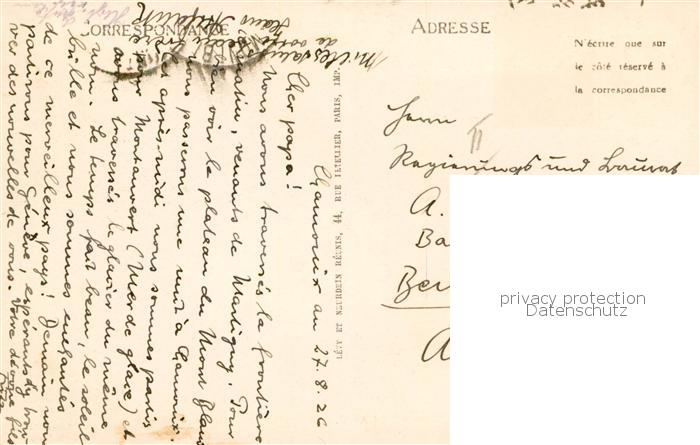 CORRESPONDANCE
Chamonix au 27.8.26
Cher papa!
Nous avons traversés la frontière
ce matin, venants de Martigny. Pour
bien voir le plateau du Mont Blanc
nous passerons une nuit à Chamonix.
Cet après-midi nous sommes partis
Montanvert (Mer de glace) et
avons traversés le glacier du même
nom. Le temps fait beau, le soleil
brille et nous sommes enchantés
de ce merveilleux pays! Demain nous
partirons pour Genève, espérants d'y trou-
ver des nouvelles de vous. Votre dévoué fils
Mille
de votre
LÉVY ET NEURDEIN RÉUNIS, 44, RUE LETELLIER, PARIS, IMP.
ADRESSE
N'écrire que sur
le côté réservé à
la correspondance
Herrn
Regierungs und Baurat
A.
Ba
Ber
A
privacy protection
Datenschutz